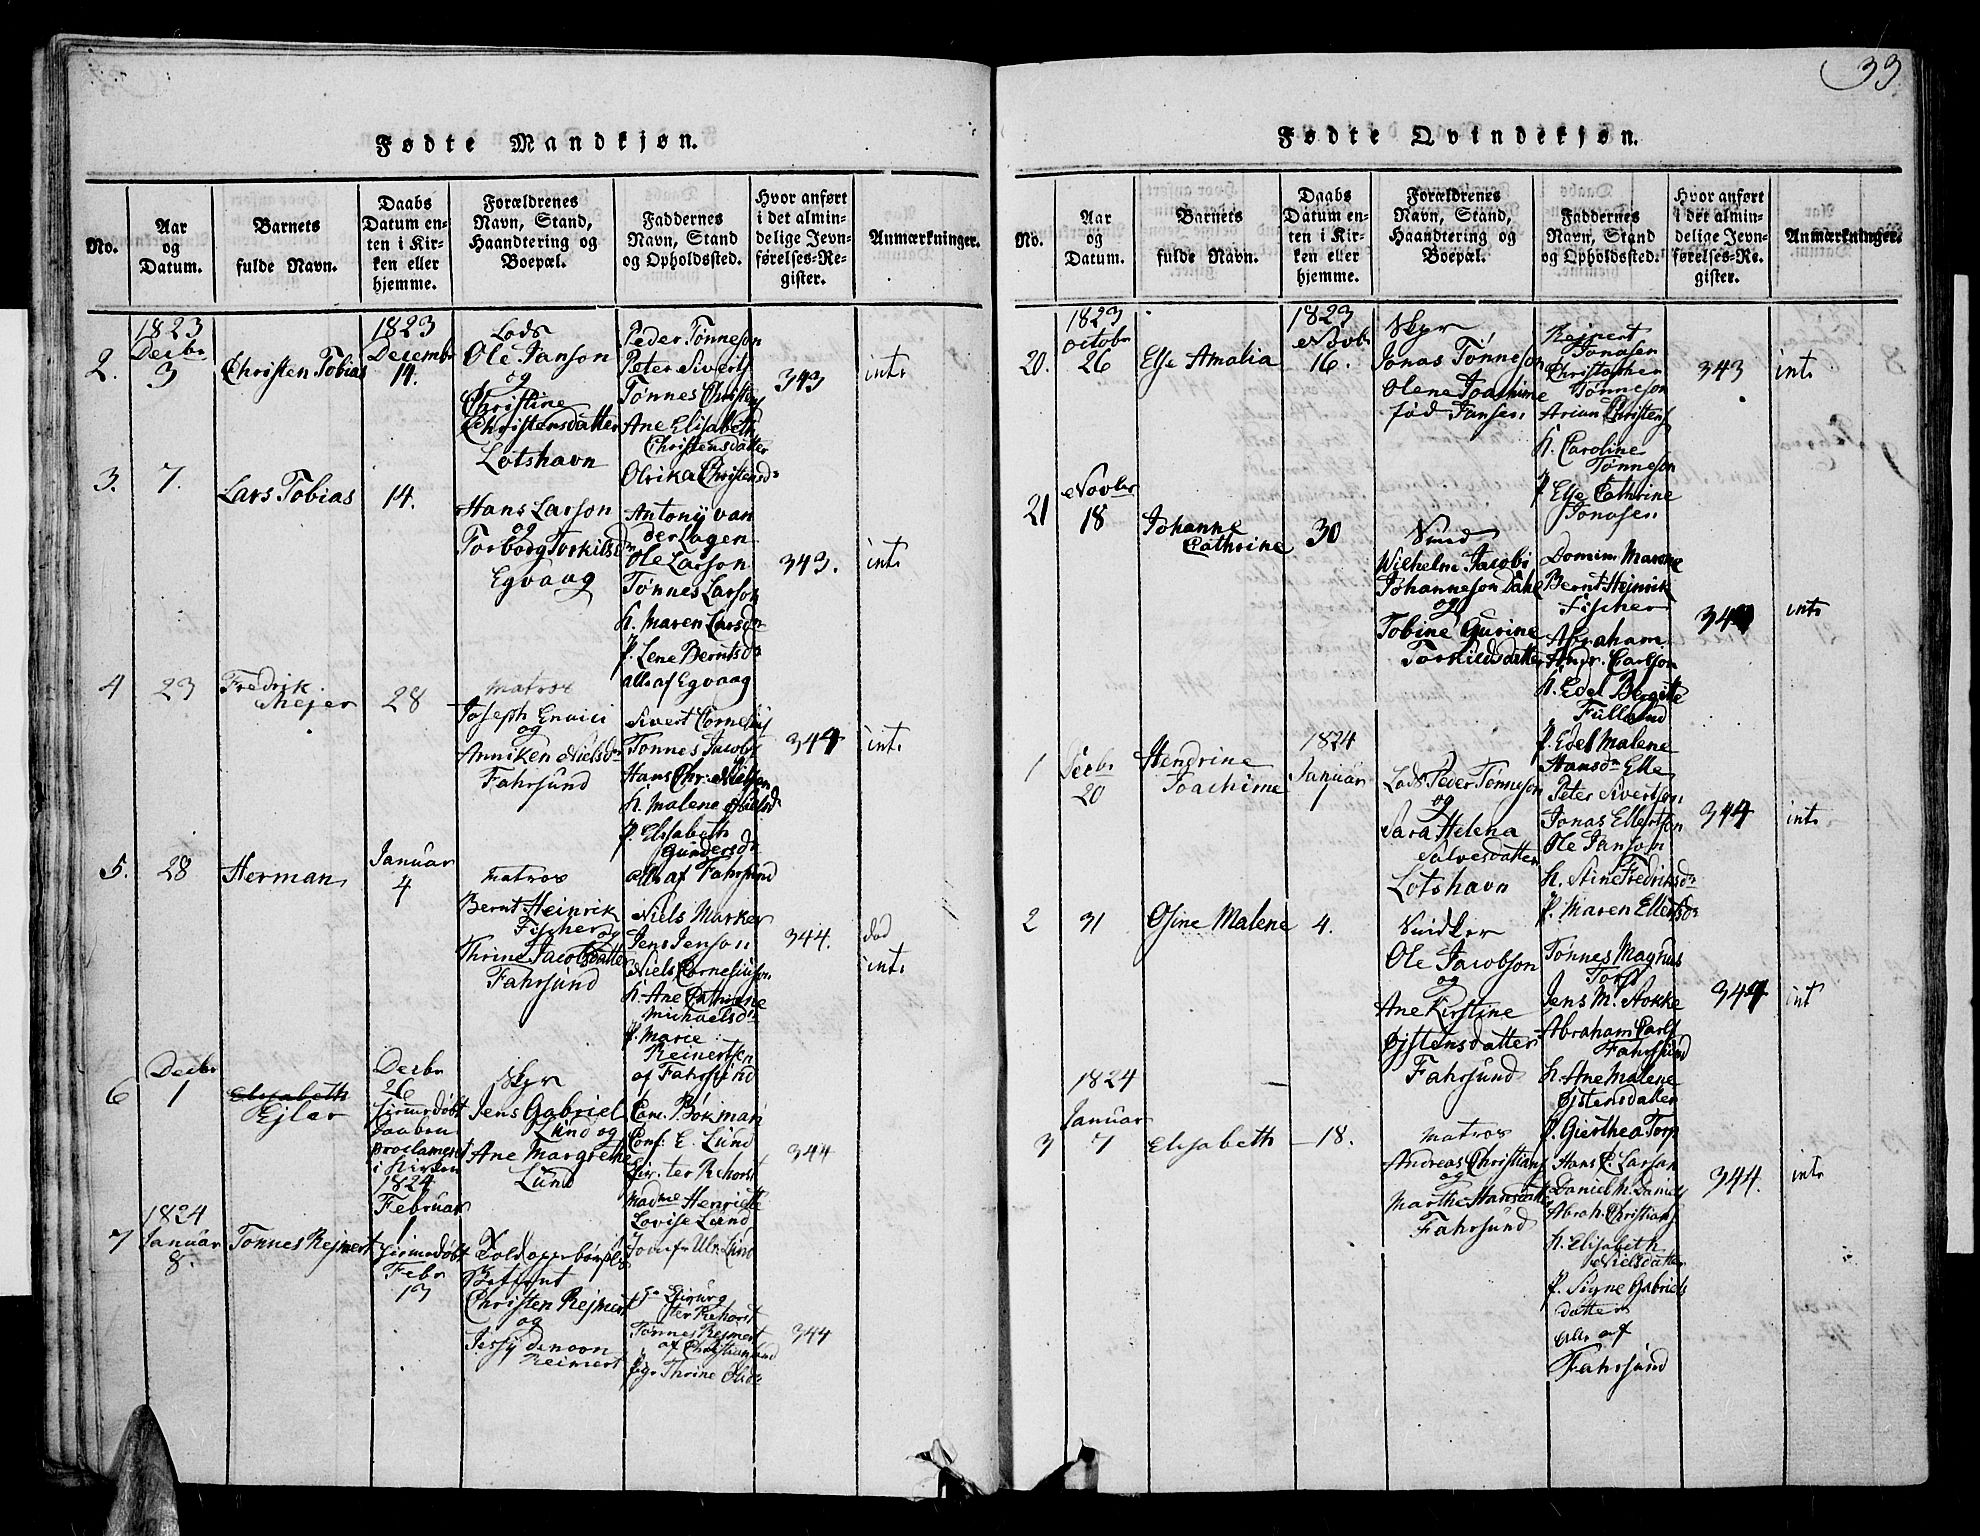 33
Fødte Mandkjøn.
No.
Aar
og
Datum.
Barnets
fulde Navn.
Daabs
Datum en-
ten i Kir-
ken eller
hjemme.
Forældrenes
Navn, Stand,
Haandtering og
Boepæl.
Faddernes
Navn, Stand
og Opholdssted.
Hvor anført
i det almin-
delige Jevn-
førelses-Re-
gister.
Anmærkninger.
2.
1823
Decbr
3
Christen Tobias
1823
Decembr
14.
Lods
Ole Janson
og
Christine
Christensdatter
Lotshavn
Peder Tønneson
Peter Siverts
Tønnes Christens
Ane Elisabeth
Christensdatter
Olrika Christensdr
343
intr
3.
7.
Lars Tobias
14.
Hans Larson
og
Torborg Torkilsdr
Egvaag
Antonij van
der Lagen
Ole Larson
Tønnes Larson
h. Maren Larsdr
P. Lene Berntsdr
alle af Egvaag
343.
intr
4
23
Fredrik
Mejer
28
Matros
Joseph
og
Anniken Nielsdr
Fahrsund
Sivert Cornelius
Tønnes Jacobs
Hans Chr. Nielsen
h. Malene Nielsdr
P. Elisabeth
Gundersdr
alle af Fahrsund
344
intr
5.
28
Herman
Januar
4
Matros
Bernt Heinrik
Fischer og
Thrine Jacobsdatter
Fahrsund
Niels Marker
Jens Jenson
Niels Corneliuson
h. Ane Cathrine
Michaelsdr
P. Marie
Reinertsen
af Fahrsund
344.
død
intr
6
Decbr
1
Elisabeth
Ejler
Decbr
26
hjemmedøbt
Daaben
proclameret
i Kirken
1824
Februar
1
Skpr
Jens Gabriel
Lund og
Ane Margrethe
Lund
Cam. Bokman
Cons. E. Lund
ter Rehorst
Madme Henriette
Lovise Lund
Jomfr Ulr. Lund
344
7
1824
Januar
8.
Tønnes Rejnert
hjemmedøbt
Febr
13
Christen Rejnert
og
Jessy Denoon
Reinert
ter Rehorst
Tønnes Rejnert
af Christiansand
Pige Thrine Olsdr
344
Fødte Qvindekjøn.
No.
Aar
og
Datum.
Barnets
fulde Navn.
Daabs
Datum en-
ten i Kir-
ken eller
hjemme.
Forældrenes
Navn, Stand,
Haandtering og
Boepæl.
Faddernes
Navn, Stand
og Opholdssted.
Hvor anført
i det almin-
delige Jevn-
førelses-Re-
gister.
Anmærkninger.
20.
1823
Octobr
26
Else Amalia
1823
Novbr
16.
Skpr
Jonas Tønneson
Olene Joachime
fød Jansen
Rejnert
Jonasen
Christopher
Tønneson
Arian Christens
h. Caroline
Tønneson
P. Else Cathrine
Jonasen
343
intr
21
Novbr
18
Johanne
Cathrine
30
Wilhelm Jacobi
Johanneson Dahl
og
Tobine Gurine
Torkildsdatter
Bernt Hejnrik
Fischer
Abraham
Andr. Carlson
h. Edel Bergitte
Fulland
P. Edel Malene
Hansdr
intr
1
Decbr
20
Hendrine
Joachime
1824
Januar
1
Lods Peder Tønneson
og
Sara Helena
Salvesdatter
Lotshavn
Peter Sivertson
Jonas Ellertson
Ole Janson
h. Stine Fredriksdr
P. Maren Ellertsdr
344
intr
2
31
Osine Malene
4.
Ole Jacobson
og
Ane Kirstine
Øjstensdatter
Fahrsund
Tønnes Magnus
Torp
Jens M. Stokke
Abraham Carls
Fahrsund
h. Ane Malene
Øjstensdatter
P. Gierthea Torp
344
int
3
1824
Januar
7
Elisabeth
18.
Matros
Andreas Christians
og
Marthe Hansdatter
Fahrsund
Hans C. Larsen
Daniel H. Daniels
Abrah. Christians
h. Elisabeth
Nielsdatter
P. Signe Gabriels
datter
alle af
Fahrsund
344.
intr